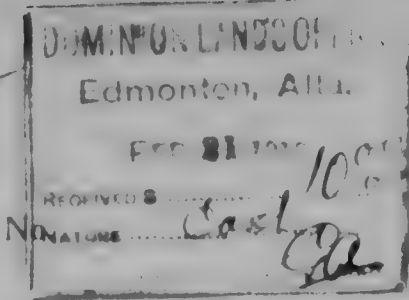 DOMINION LANDS OFFICE
Edmonton, Alta.
FEB 21
RECEIVED $ 10 00
NATURE Cash